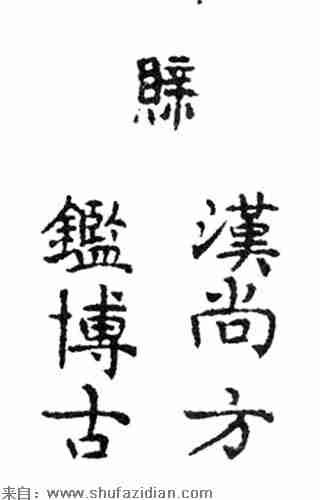 漢尚方
鑑博古
来自：www.shufazidian.com